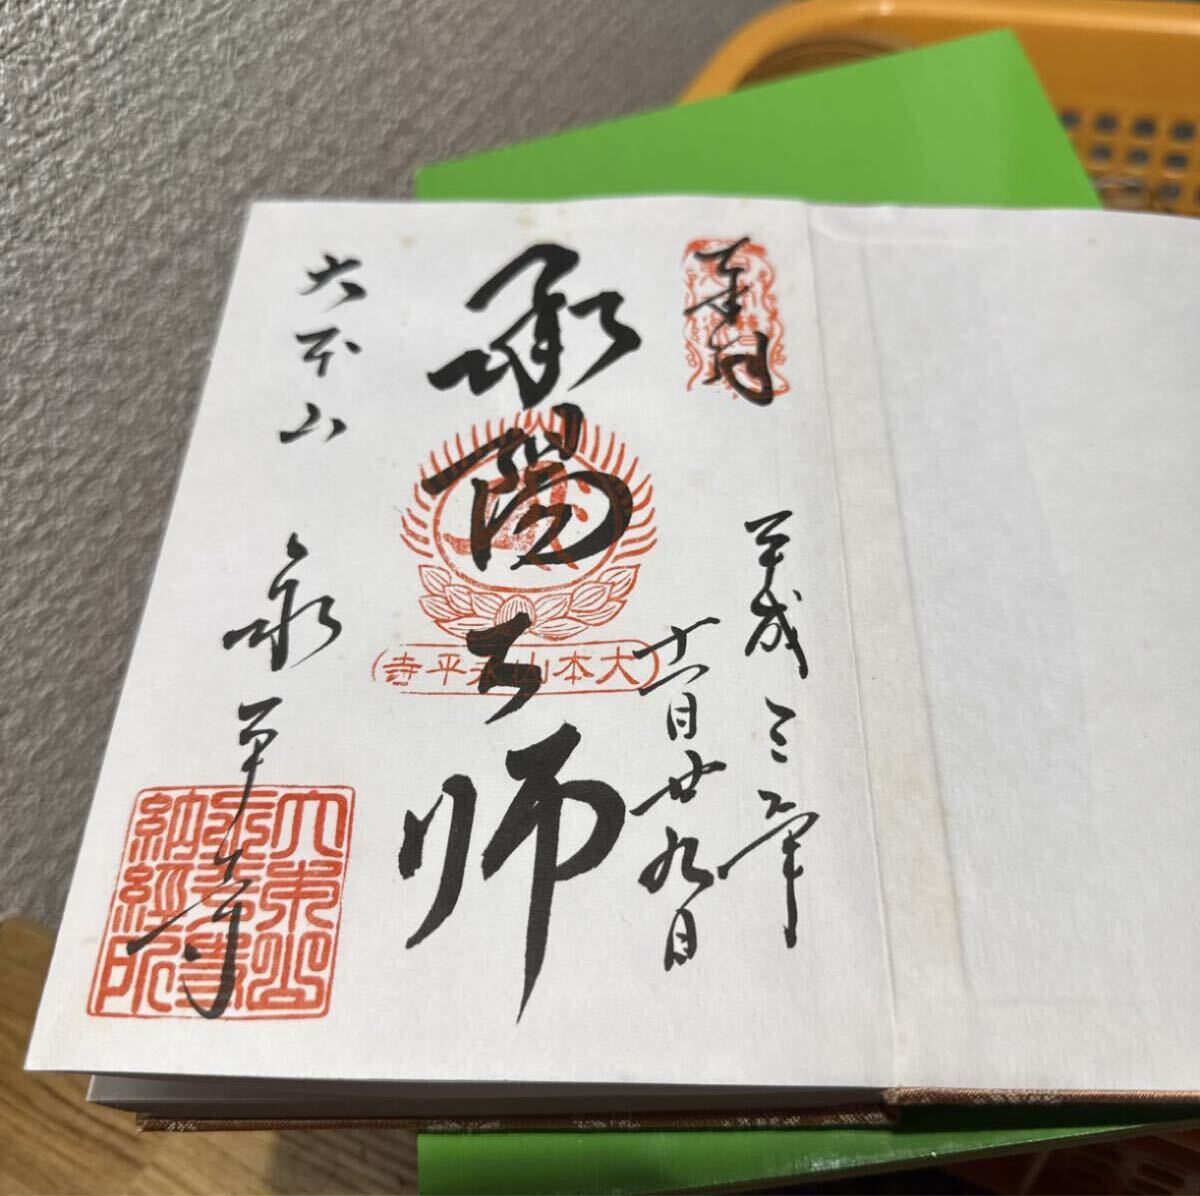 奉拝
平成三年
十一月廿九日
承陽大師
大本山永平寺
大本山 永平寺
大本山
永平寺
納経印